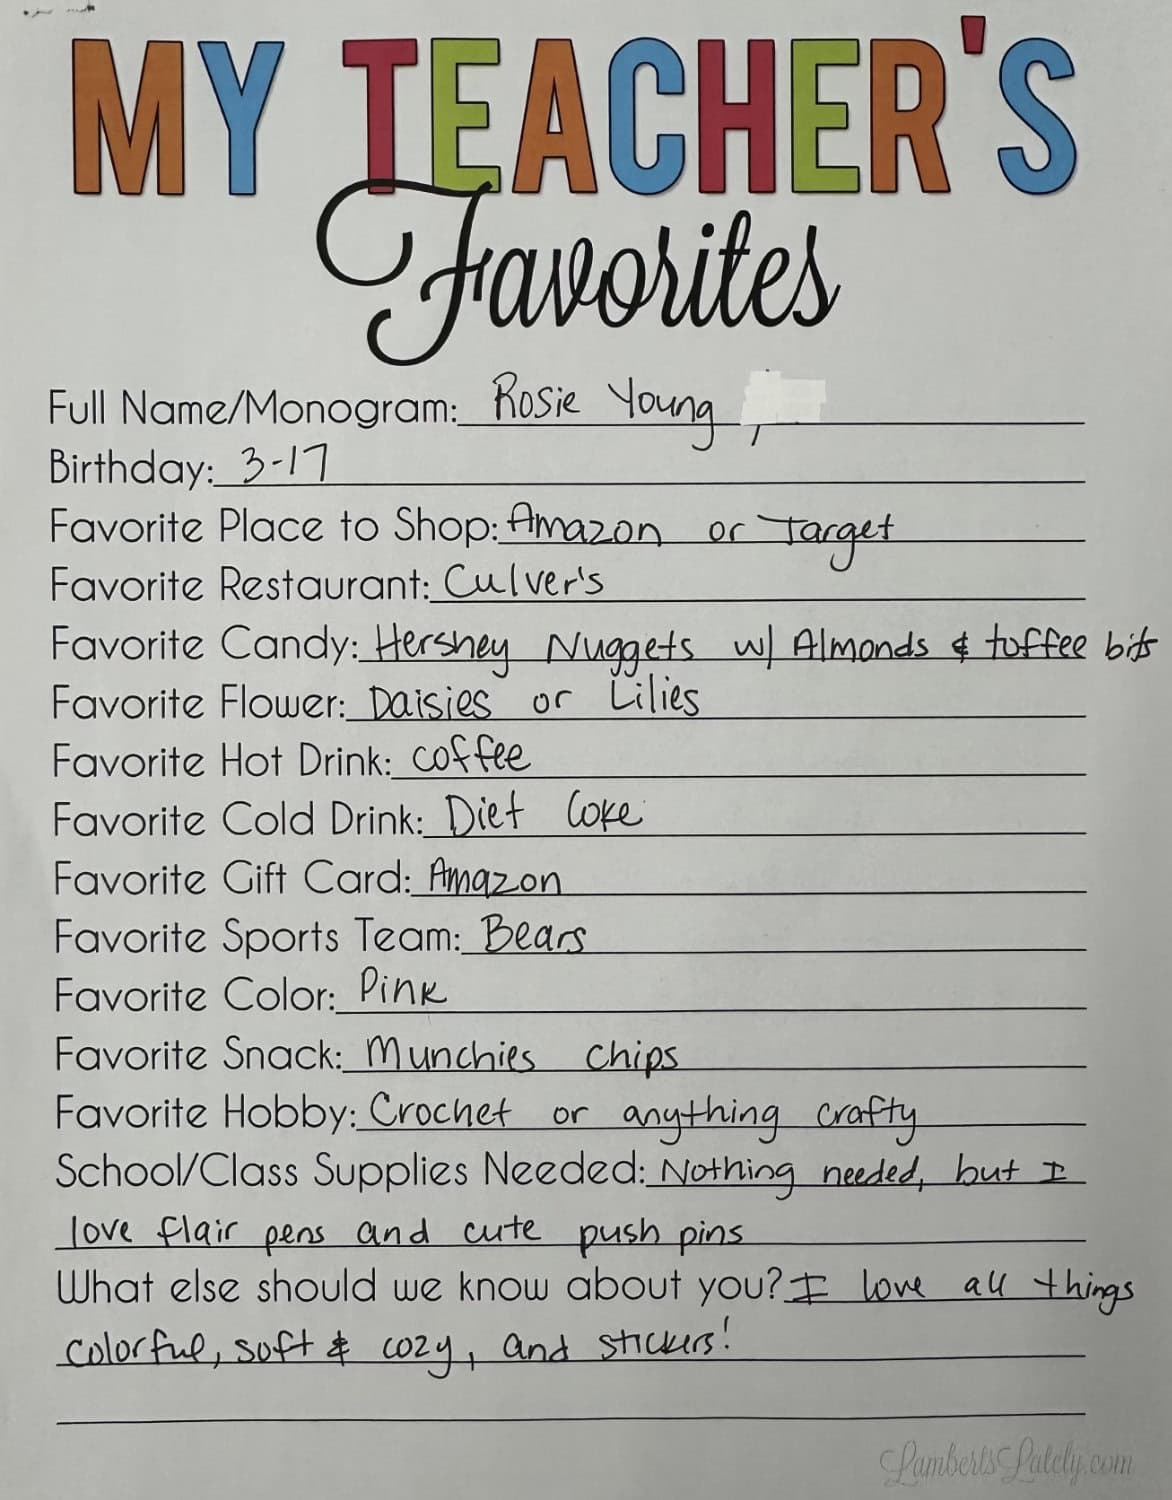 MY TEACHER'S
Favorites
Full Name/Monogram: Rosie Young,
Birthday: 3-17
Favorite Place to Shop: Amazon or Target
Favorite Restaurant: Culver's
Favorite Candy: Hershey Nuggets w/ Almonds & toffee bits
Favorite Flower: Daisies or Lilies
Favorite Hot Drink: coffee
Favorite Cold Drink: Diet Coke
Favorite Gift Card: Amazon
Favorite Sports Team: Bears
Favorite Color: Pink
Favorite Snack: Munchies chips
Favorite Hobby: Crochet or anything crafty
School/Class Supplies Needed: Nothing needed, but I
love flair pens and cute push pins
What else should we know about you? I love all things
colorful, soft & cozy, and stickers!
LambertsLately.com